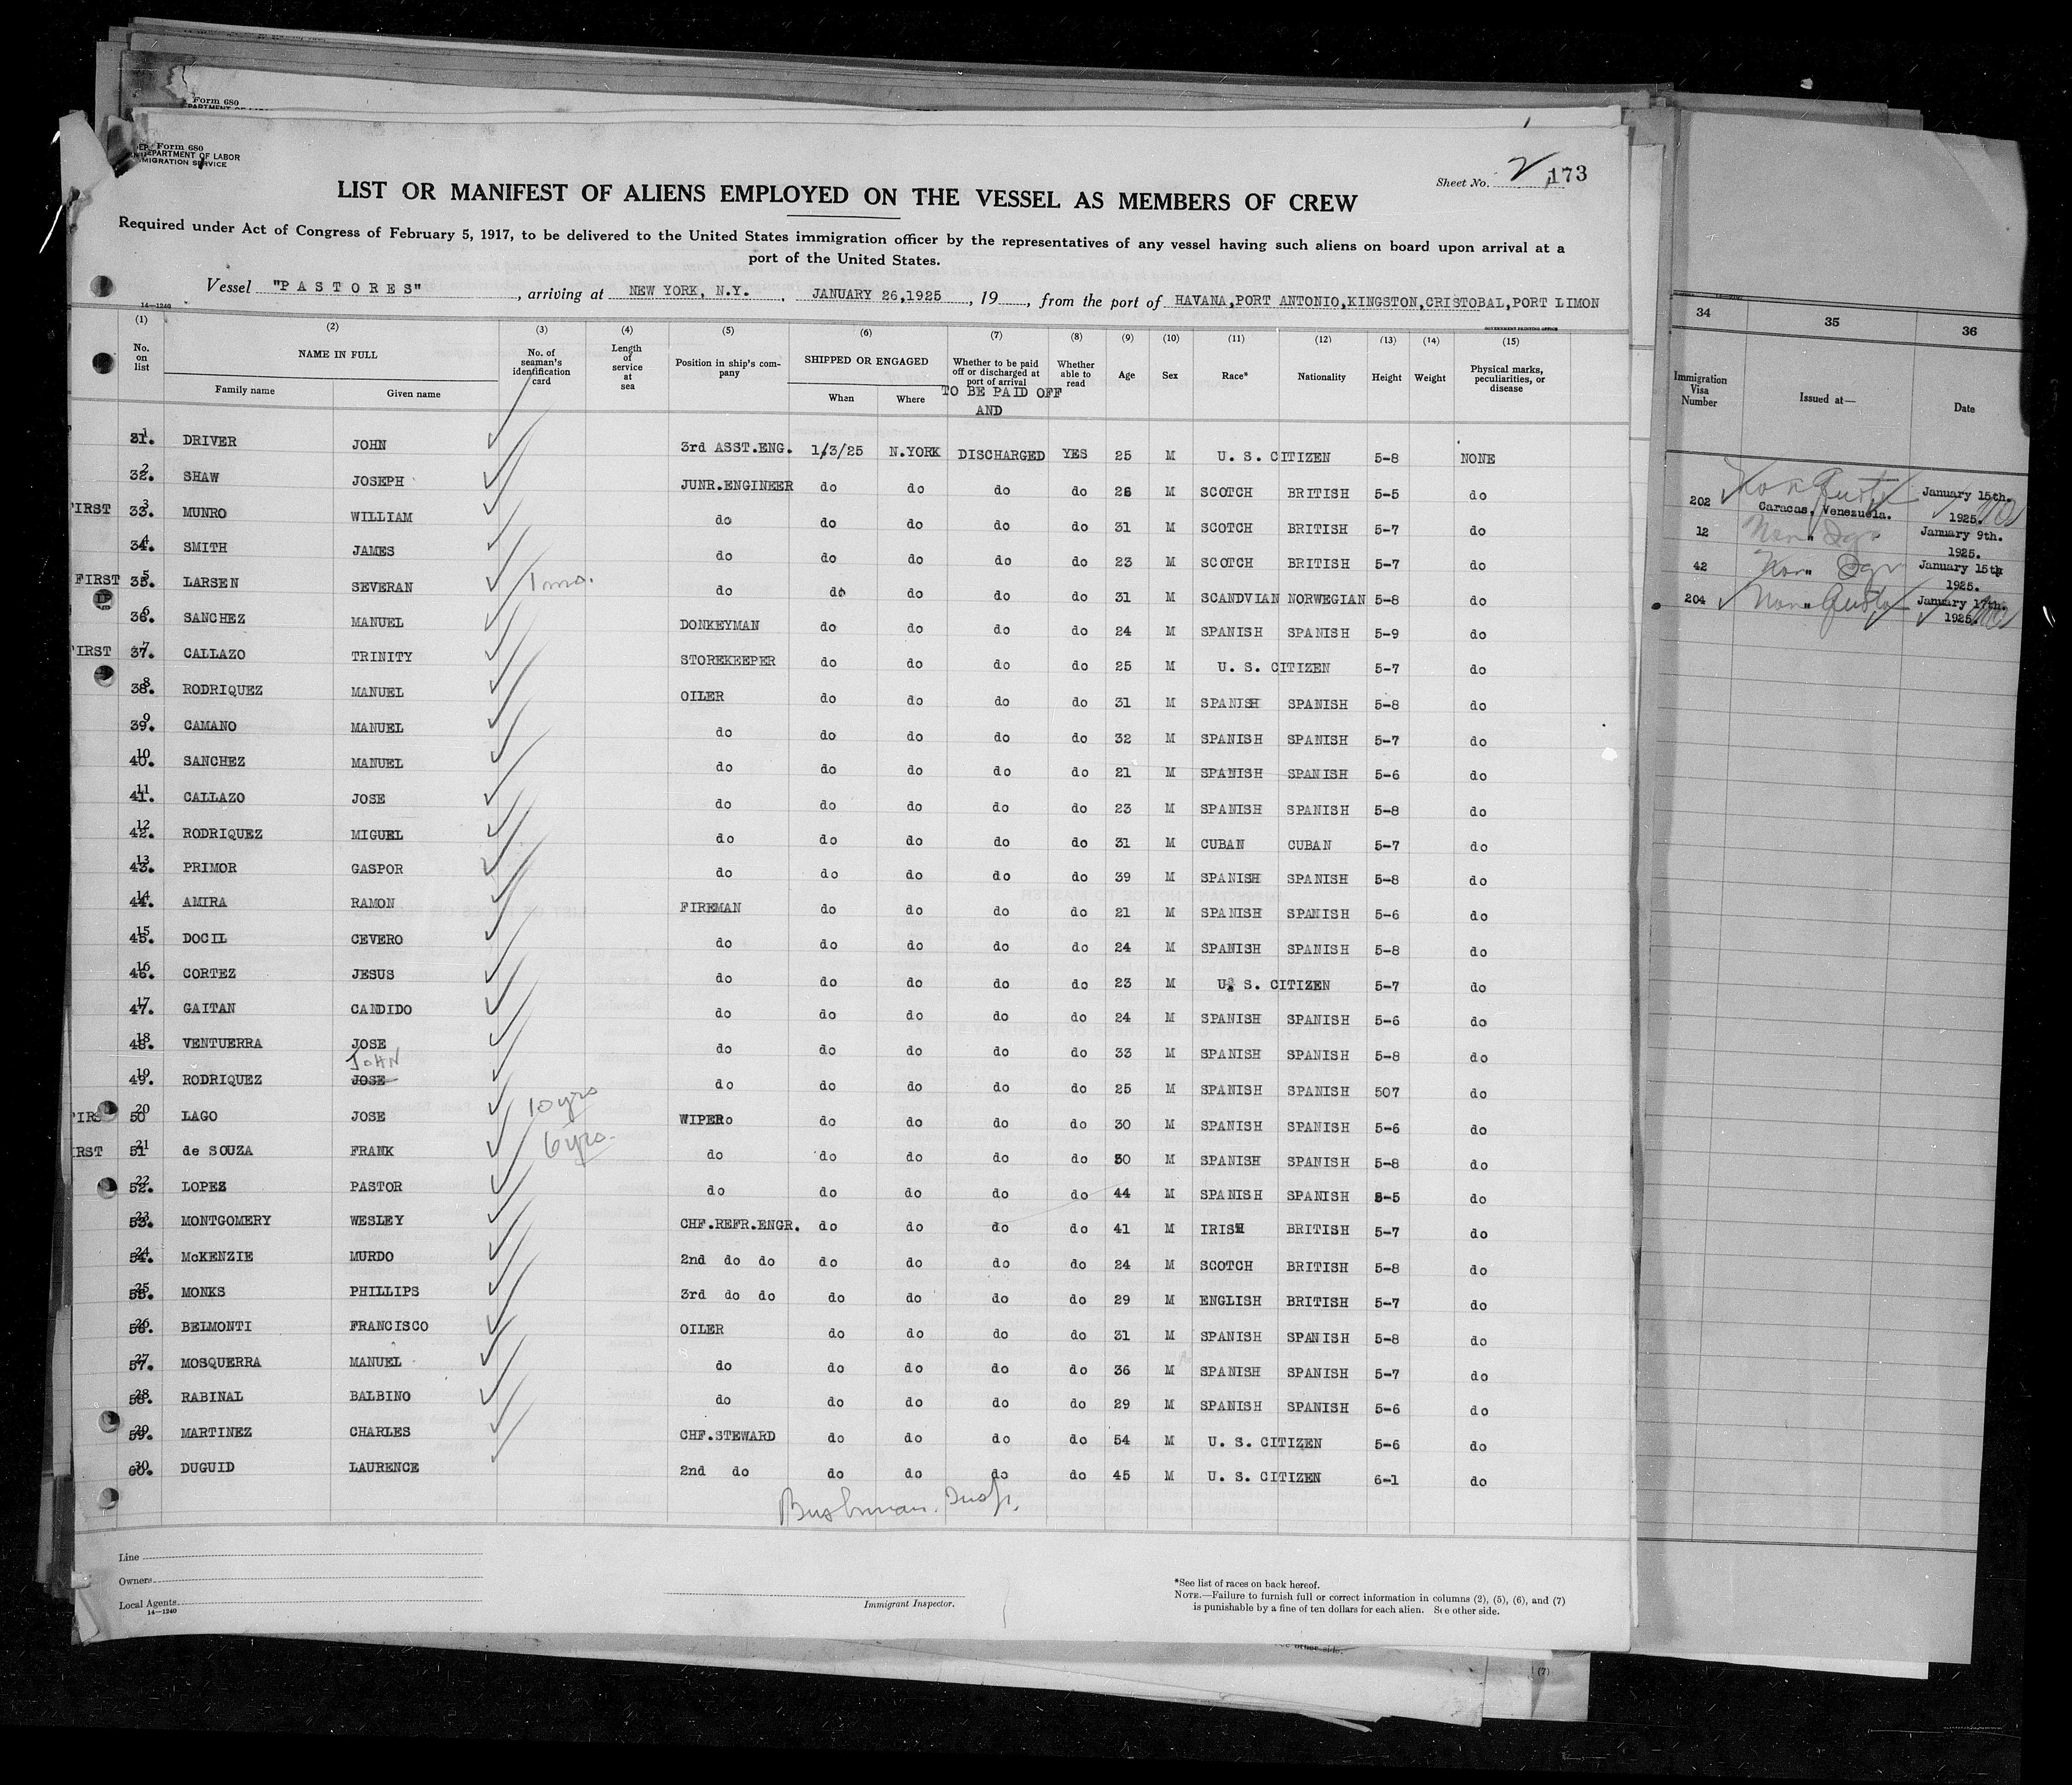 Form 680
Form 680
DEPARTMENT OF LABOR
IMMIGRATION SERVICE
Sheet No. 2 173
LIST OR MANIFEST OF ALIENS EMPLOYED ON THE VESSEL AS MEMBERS OF CREW
Required under Act of Congress of February 5, 1917, to be delivered to the United States immigration officer by the representatives of any vessel having such aliens on board upon arrival at a
port of the United States.
Vessel "PASTORES", arriving at NEW YORK, N.Y., JANUARY 26,1925, 19, from the port of HAVANA,PORT ANTONIO,KINGSTON,CRISTOBAL,PORT LIMON
14—1240
GOVERNMENT PRINTING OFFICE
(1) (2) (3) (4) (5) (6) (7) (8) (9) (10) (11) (12) (13) (14) (15)
No. on list NAME IN FULL Family name Given name No. of seaman's identification card Length of service at sea Position in ship's company SHIPPED OR ENGAGED When Where Whether to be paid off or discharged at port of arrival Whether able to read Age Sex Race* Nationality Height Weight Physical marks, peculiarities, or disease
TO BE PAID OFF
AND
1 31. DRIVER JOHN 3rd ASST.ENG. 1/3/25 N.YORK DISCHARGED YES 25 M U. S. CITIZEN 5-8 NONE
2 32. SHAW JOSEPH JUNR.ENGINEER do do do do 26 M SCOTCH BRITISH 5-5 do
FIRST 3 33. MUNRO WILLIAM do do do do do 31 M SCOTCH BRITISH 5-7 do
4 34. SMITH JAMES do do do do do 23 M SCOTCH BRITISH 5-7 do
FIRST 5 35. LARSEN SEVERAN 1 mo. do do do do do 31 M SCANDVIAN NORWEGIAN 5-8 do
6 36. SANCHEZ MANUEL DONKEYMAN do do do do 24 M SPANISH SPANISH 5-9 do
FIRST 7 37. CALLAZO TRINITY STOREKEEPER do do do do 25 M U. S. CITIZEN 5-7 do
8 38. RODRIQUEZ MANUEL OILER do do do do 31 M SPANISH SPANISH 5-8 do
9 39. CAMANO MANUEL do do do do do 32 M SPANISH SPANISH 5-7 do
10 40. SANCHEZ MANUEL do do do do do 21 M SPANISH SPANISH 5-6 do
11 41. CALLAZO JOSE do do do do do 23 M SPANISH SPANISH 5-8 do
12 42. RODRIQUEZ MIGUEL do do do do do 31 M CUBAN CUBAN 5-7 do
13 43. PRIMOR GASPOR do do do do do 39 M SPANISH SPANISH 5-8 do
14 44. AMIRA RAMON FIREMAN do do do do 21 M SPANISH SPANISH 5-6 do
15 45. DOCIL CEVERO do do do do do 24 M SPANISH SPANISH 5-8 do
16 46. CORTEZ JESUS do do do do do 23 M U. S. CITIZEN 5-7 do
17 47. GAITAN CANDIDO do do do do do 24 M SPANISH SPANISH 5-6 do
18 48. VENTUERRA JOSE do do do do do 33 M SPANISH SPANISH 5-8 do
JOHN
19 49. RODRIQUEZ JOSE do do do do do 25 M SPANISH SPANISH 507 do
FIRST 20 50 LAGO JOSE 10 yrs WIPER do do do do 30 M SPANISH SPANISH 5-6 do
FIRST 21 51 de SOUZA FRANK 6 yrs. do do do do do 50 M SPANISH SPANISH 5-8 do
22 52. LOPEZ PASTOR do do do do do 44 M SPANISH SPANISH 5-5 do
23 53. MONTGOMERY WESLEY CHF.REFR.ENGR. do do do do 41 M IRISH BRITISH 5-7 do
24 54. McKENZIE MURDO 2nd do do do do do do 24 M SCOTCH BRITISH 5-8 do
25 55. MONKS PHILLIPS 3rd do do do do do do 29 M ENGLISH BRITISH 5-7 do
26 56. BELMONTI FRANCISCO OILER do do do do 31 M SPANISH SPANISH 5-8 do
27 57. MOSQUERRA MANUEL do do do do do 36 M SPANISH SPANISH 5-7 do
28 58. RABINAL BALBINO do do do do do 29 M SPANISH SPANISH 5-6 do
29 59. MARTINEZ CHARLES CHF.STEWARD do do do do 54 M U. S. CITIZEN 5-6 do
30 60. DUGUID LAURENCE 2nd do do do do do 45 M U. S. CITIZEN 6-1 do
Bushman. Insp.
Line
Owners
Local Agents
14—1240
Immigrant Inspector.
*See list of races on back hereof.
NOTE.—Failure to furnish full or correct information in columns (2), (5), (6), and (7)
is punishable by a fine of ten dollars for each alien. See other side.
34 35 36
Immigration Visa Number Issued at— Date
202 Caracas, Venezuela. January 15th. 1925.
12 " January 9th. 1925.
42 " January 15th 1925.
204 " January 17th. 1925.
see other side.
(7)